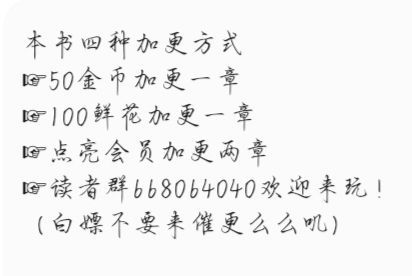 本书四种加更方式
☞50金币加更一章
☞100鲜花加更一章
☞点亮会员加更两章
☞读者群668064040欢迎来玩！
（白嫖不要来催更么么叽）